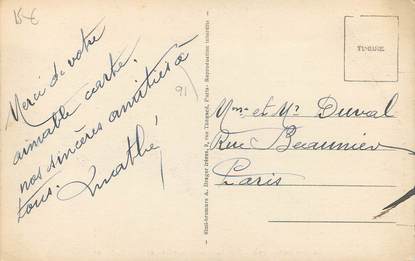 15€
Merci de votre
aimable carte.
nos sincères amitiés à
tous.
91
Simi-bromure A. Breger frères, 9, rue Thénard, Paris - Reproduction interdite
TIMBRE
Mme et Mr Duval
Rue Beaunier
Paris